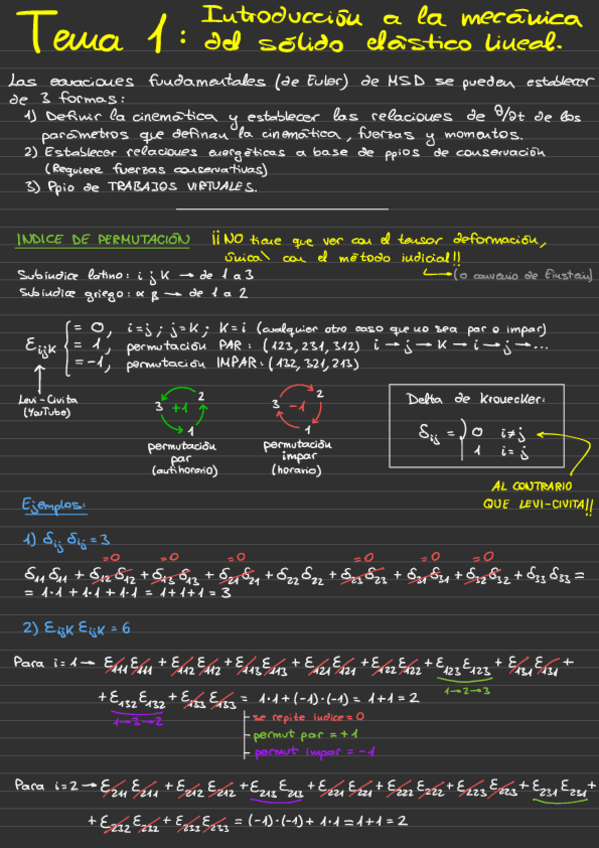 Tema 1: Introducción a la mecánica
del sólido elástico lineal.
Las ecuaciones fundamentales (de Euler) de MSD se pueden establecer
de 3 formas:
1) Definir la cinemática y establecer las relaciones de ∂/∂t de los
parámetros que definan la cinemática, fuerzas y momentos.
2) Establecer relaciones energéticas a base de ppios de conservación
(Requiere fuerzas conservativas)
3) Ppio de TRABAJOS VIRTUALES.
INDICE DE PERMUTACIÓN ¡¡NO tiene que ver con el tensor deformación,
con el método indicial!!
Subíndice latino: i j K → de 1 a 3
(o convenio de Einstein)
Subíndice griego: α β → de 1 a 2
= 0, i=j ; j=K ; K=i (cualquier otro caso que no sea par o impar)
εijK = 1, permutación PAR: (123, 231, 312) i → j → K → i → j → ...
= -1, permutación IMPAR: (132, 321, 213)
Levi-Civita
(YouTube)
3 +1 2
1
permutación
par
(antihorario)
3 -1 2
1
permutación
impar
(horario)
Delta de Kronecker:
δij = 0 i≠j
1 i=j
AL CONTRARIO
QUE LEVI-CIVITA!!
Ejemplos:
1) δij δij = 3
=0 =0 =0 =0 =0 =0
δ11 δ11 + δ12 δ12 + δ13 δ13 + δ21 δ21 + δ22 δ22 + δ23 δ23 + δ31 δ31 + δ32 δ32 + δ33 δ33 =
= 1·1 + 1·1 + 1·1 = 1+1+1 = 3
2) εijK εijK = 6
Para i=1 → ε111 ε111 + ε112 ε112 + ε113 ε113 + ε121 ε121 + ε122 ε122 + ε123 ε123 + ε131 ε131 +
1→2→3
+ ε132 ε132 + ε133 ε133 = 1·1 + (-1)·(-1) = 1+1 = 2
1→3→2
se repite indice = 0
permut par = +1
permut impar = -1
Para i=2 → ε211 ε211 + ε212 ε212 + ε213 ε213 + ε221 ε221 + ε222 ε222 + ε223 ε223 + ε231 ε231 +
+ ε232 ε232 + ε233 ε233 = (-1)·(-1) + 1·1 = 1+1 = 2